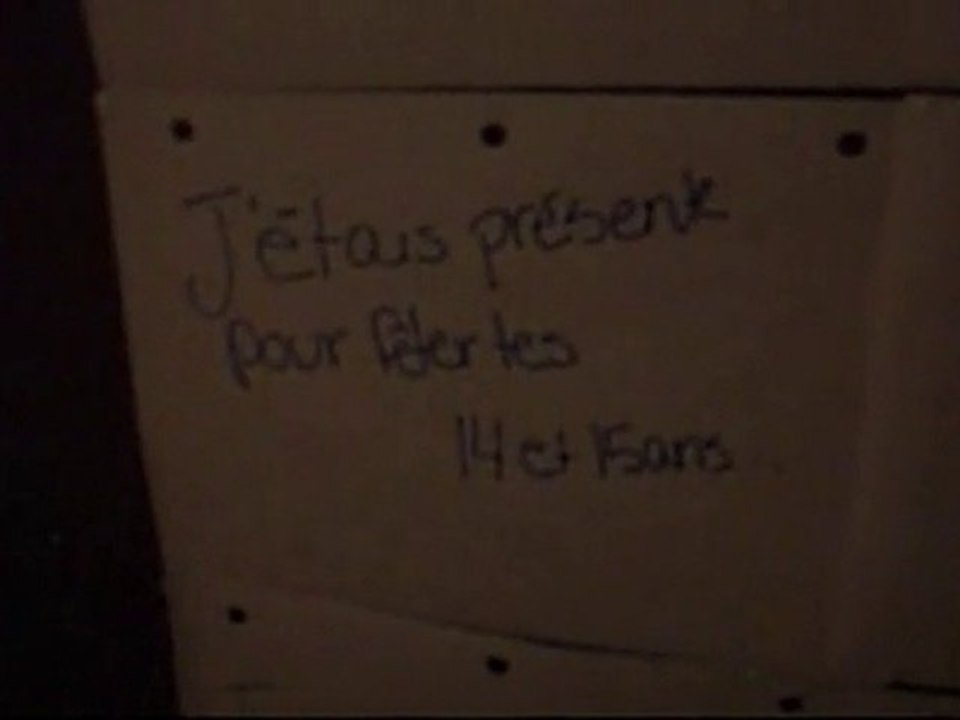 J'étais présent
pour fêter tes
14 et 15 ans